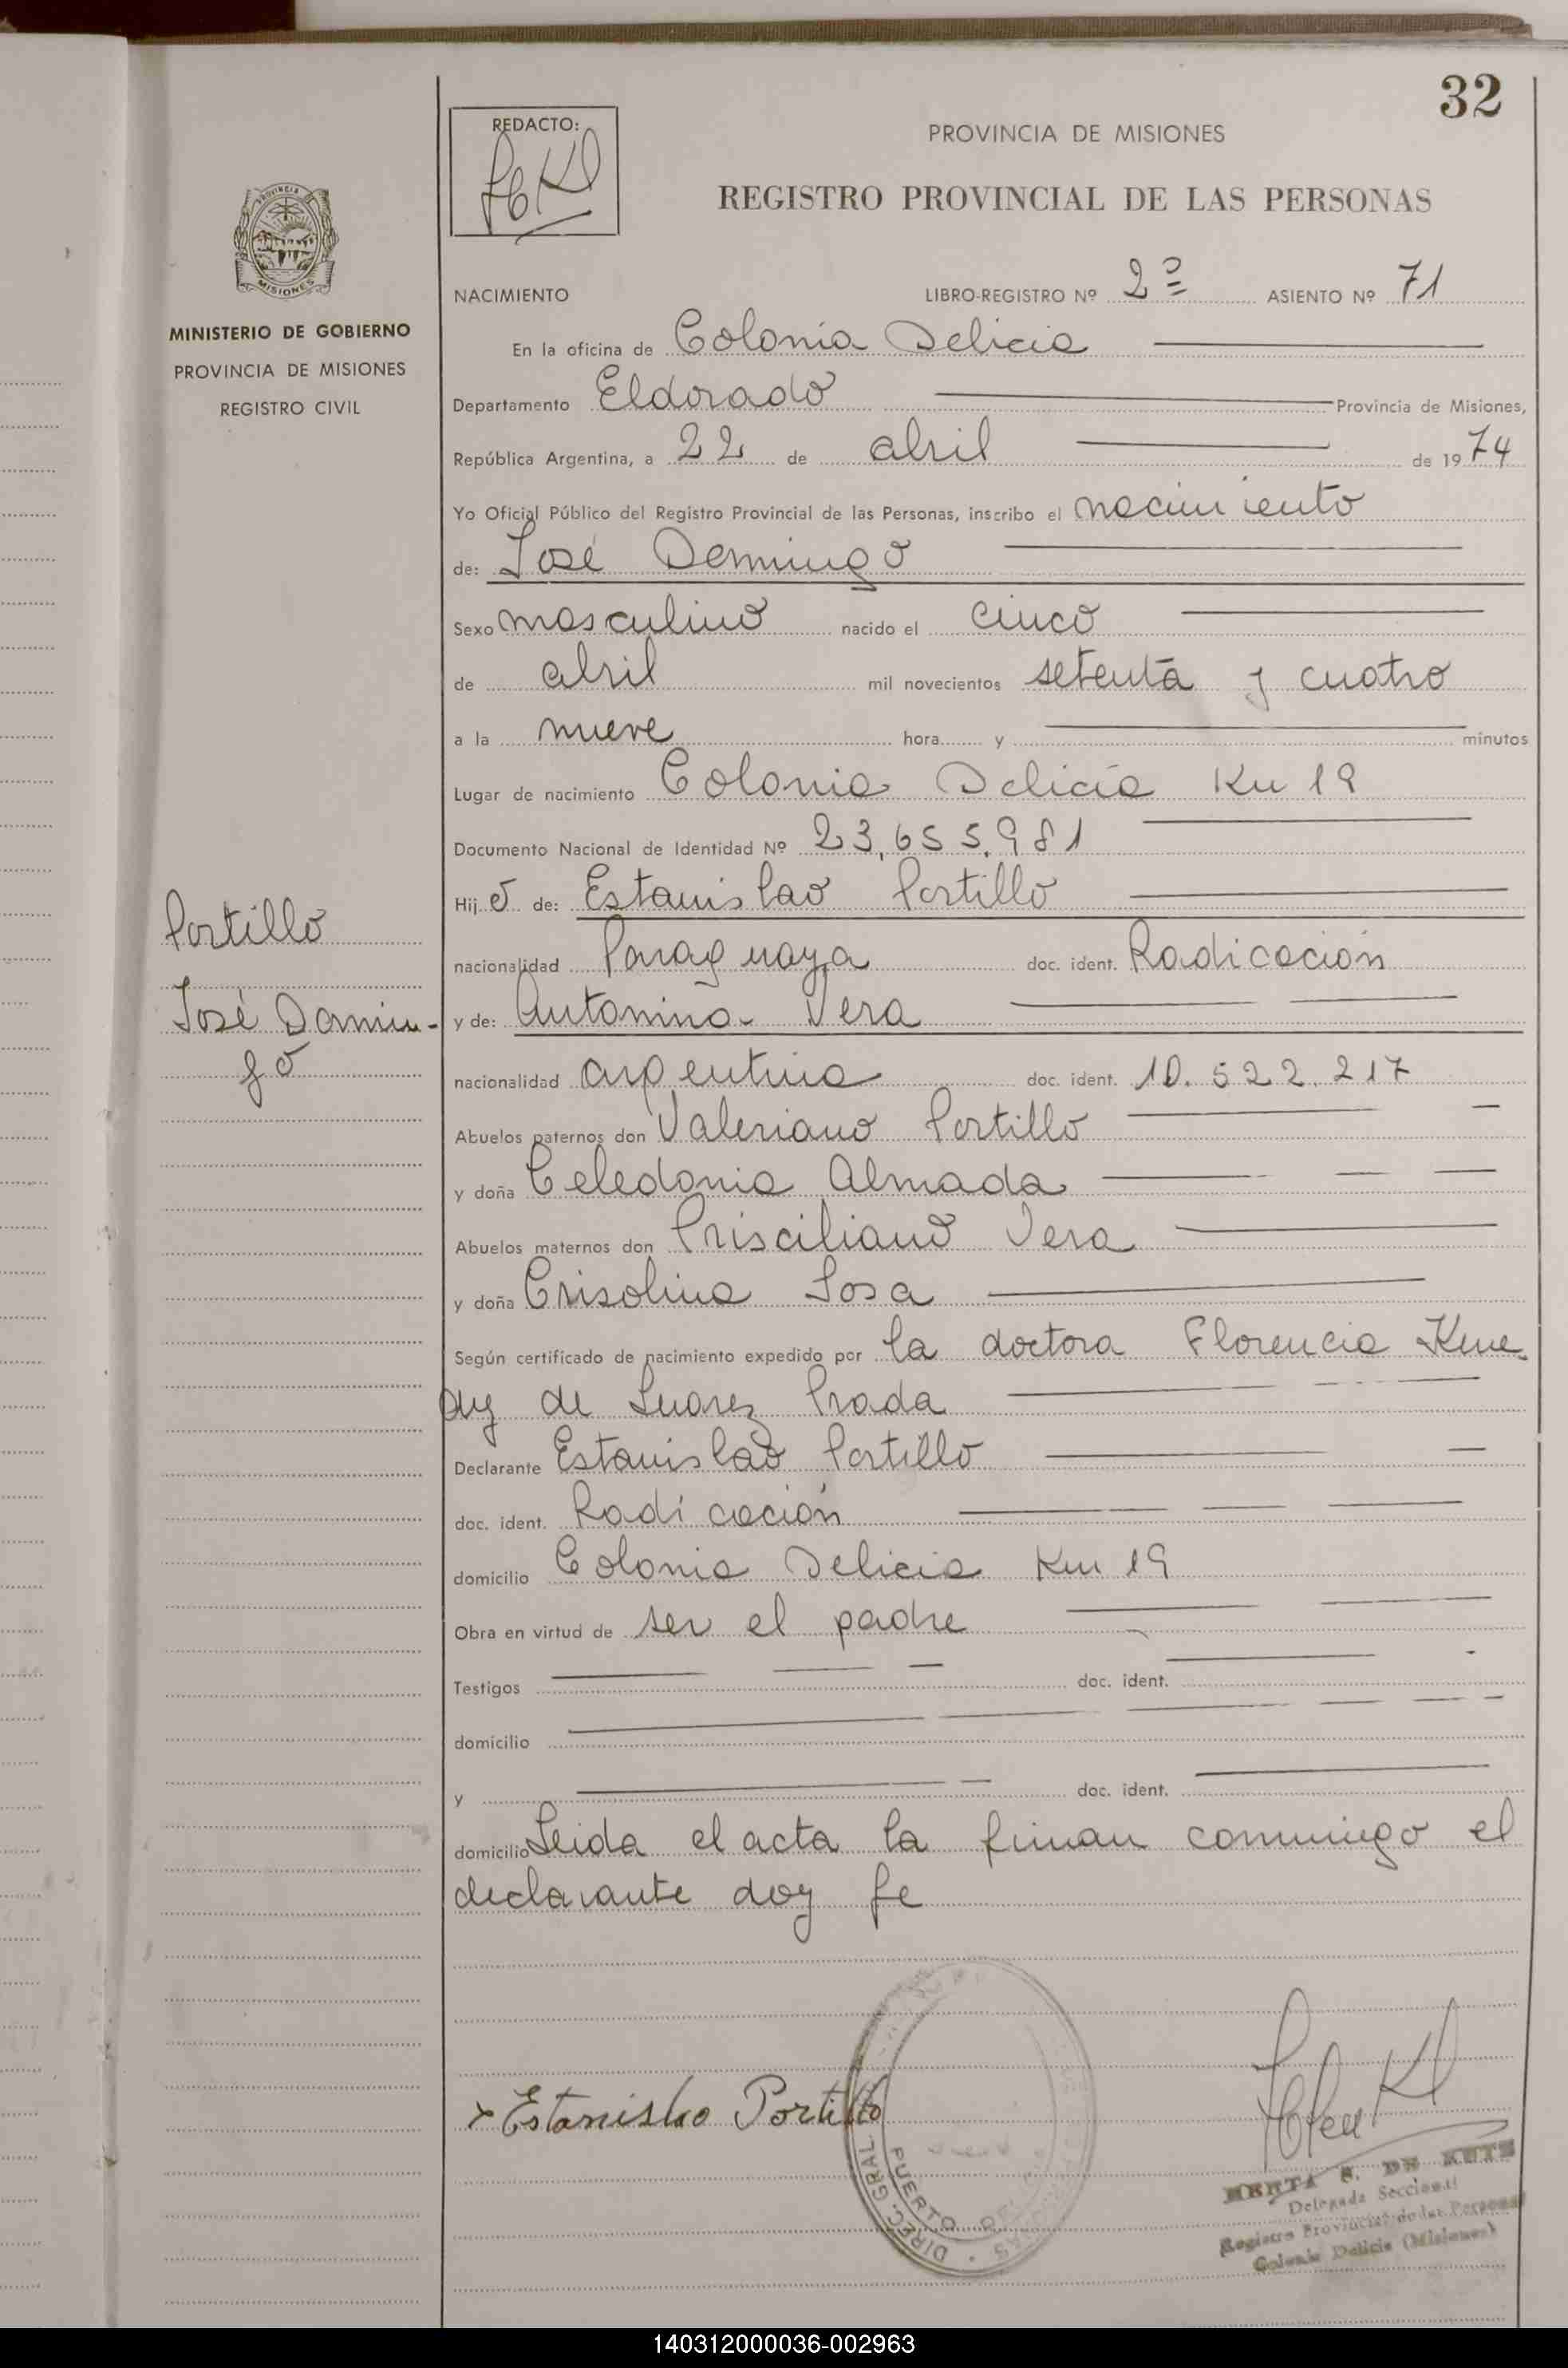 32
REDACTO:
PROVINCIA DE MISIONES
REGISTRO PROVINCIAL DE LAS PERSONAS
PROVINCIA
MISIONES
MINISTERIO DE GOBIERNO
PROVINCIA DE MISIONES
REGISTRO CIVIL
NACIMIENTO LIBRO-REGISTRO Nº 2º ASIENTO Nº 71
En la oficina de Colonia Delicia
Departamento Eldorado Provincia de Misiones,
República Argentina, a 22 de abril de 1974
Yo Oficial Público del Registro Provincial de las Personas, inscribo el nacimiento
de: José Domingo
Sexo masculino nacido el cinco
de abril mil novecientos setenta y cuatro
a la nueve hora y minutos
Lugar de nacimiento Colonia Delicia Km 19
Documento Nacional de Identidad Nº 23.655.981
Hijo de: Estanislao Portillo
nacionalidad Paraguaya doc. ident. Radicación
y de: Antonina Vera
nacionalidad argentina doc. ident. 10.522.217
Abuelos paternos don Valeriano Portillo
y doña Celedonia Almada
Abuelos maternos don Prisciliano Vera
y doña Crisolina Sosa
Según certificado de nacimiento expedido por la doctora Florencia Kene
dy de Suarez Prada
Declarante Estanislao Portillo
doc. ident. Radicación
domicilio Colonia Delicia Km 19
Obra en virtud de ser el padre
Testigos doc. ident.
domicilio
y doc. ident.
domicilio Leida el acta la firman conmigo el
declarante doy fe
Portillo
José Domin-
go
x Estanislao Portillo
DIREC. GRAL.
PUERTO
HERTA S. DE KUTZ
Delegada Seccional
Registro Provincial de las Personas
Colonia Delicia (Misiones)
140312000036-002963